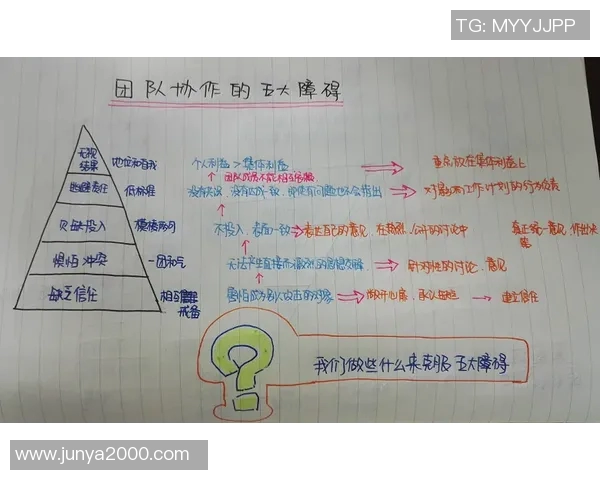 TG: MYYJJPP
团队协作的五大障碍
无视
结果
地位和自我
个人利益 > 集体利益
重点放在集体利益上
团队成员不能相互
逃避责任
低标准
没有共识、没有达成一致,即使有问题也不会指出
对影响工作计划的行为负责
欠缺投入
模棱两可
不投入,表面一致
表达自己的意见,在
公开的讨论中
真正统一意见,作出决
定
惧怕冲突
一团和气
无法产生直接而激烈的思想交锋
针对性的讨论、意见
缺乏信任
相互
戒备
害怕成为别人攻击的对象
敞开心扉,承认缺点
建立信任
我们做些什么来克服五大障碍
www.junya2000.com